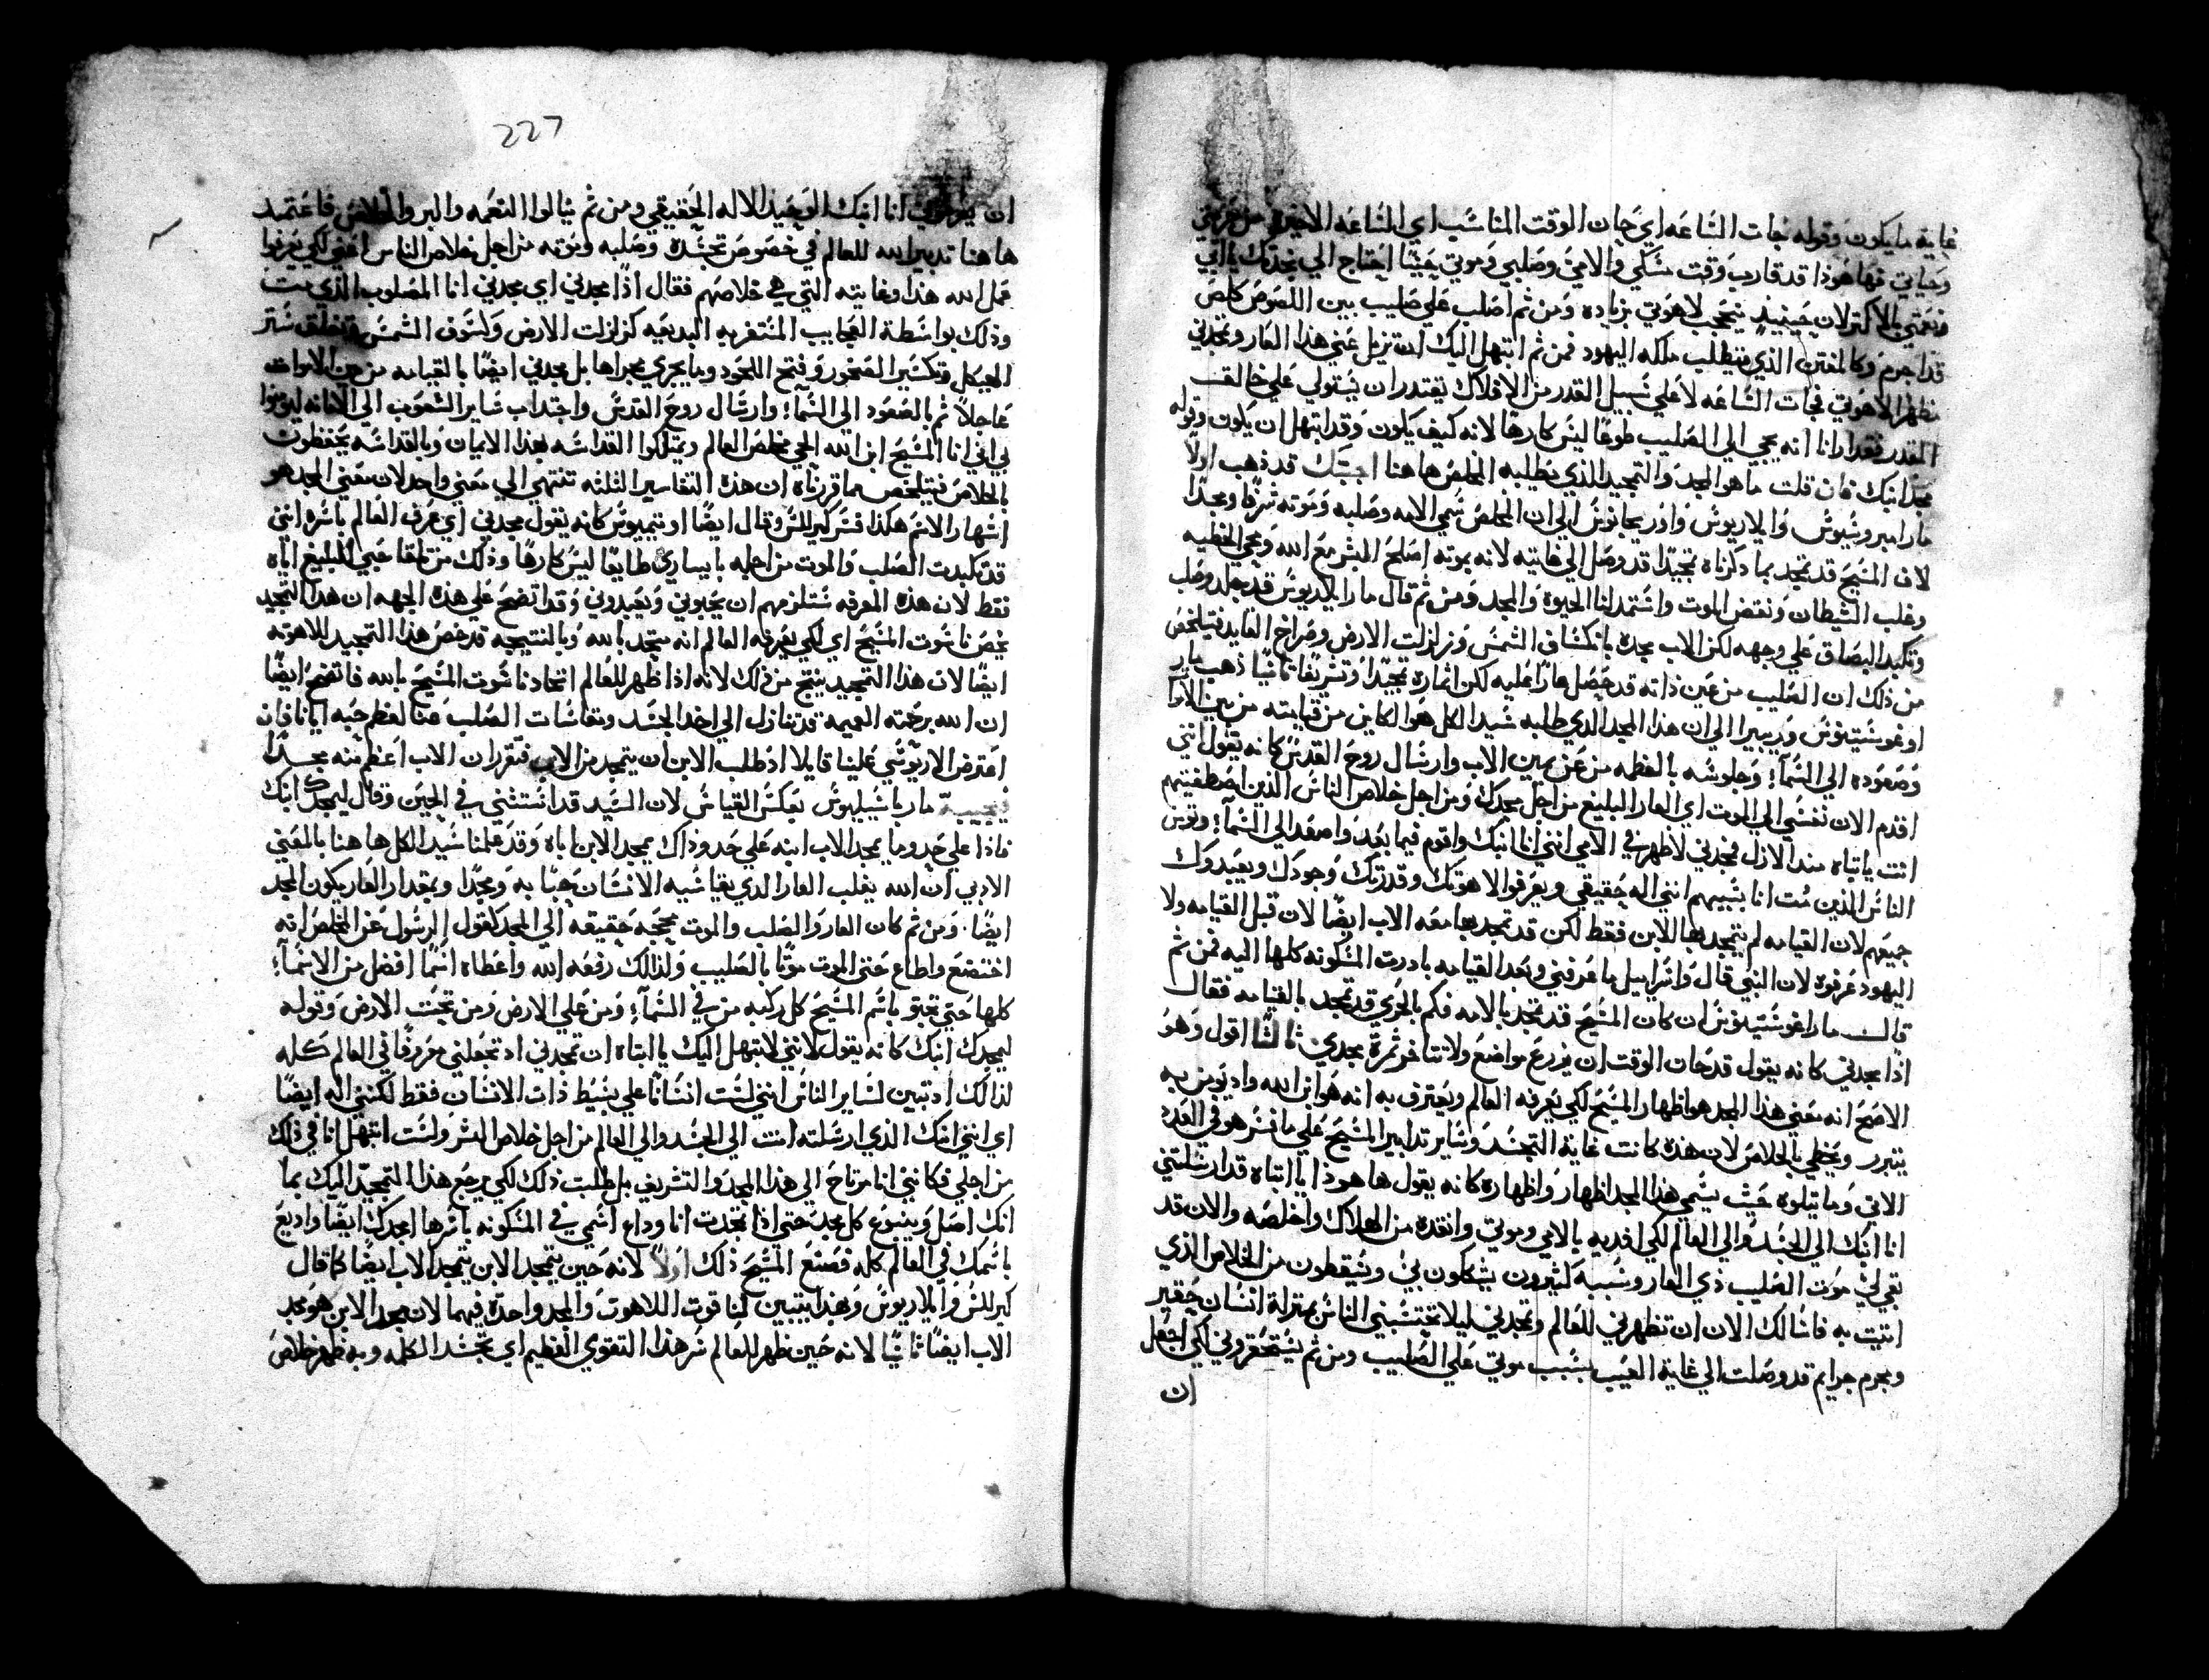 غاية ما يكون وقوله نجات الساعه اي حان الوقت المناسب اي الساعه الاخيره من
وحياتي فها هوذا قد قارب وقت مسكي والامي وصلبي وموتي يقينا احتاج الي نجدتك يا ابي
بالاكثر لان حينيذٍ يتحجب لاهوتي بزياده ومن ثم اصلب علي صليب بين اللصوص كلص
قد اجرم وكالمفتن الذي يتطلب ملكه اليهود فمن ثم ابتهل اليك ان تزيل عني هذا العار وتمجدني
مظهرا لاهوتي فجات الساعه لا علي سبيل القدر من الافلاك يقتدر ان يستولي علي خالقـ
القدر فقد ارانا انه يجي الي الصليب طوعًا ليس كارها لانه كيف يكون وقد ابتهل ان يكون وقوله
مجد ابنك فان قلت ما هو المجد والتمجيد الذي يطلبه المخلص هاهنا اجبتك قد ذهب اولًا
مار امبروسيوس وايلاريوس واوريجانوس الي ان المخلص سمي الامه وصلبه وموته شرفا ومجدًا
لان المسيح قد تمجد بما ذكرناه تمجيدًا قد وصل الي غايته لانه بموته اصلح البشر مع الله ومحي الخطيه
وغلب الشيطان ونقض الموت واستمد لنا الحيوة والمجد ومن ثم قال مار ايلاريوس قد جلد وصلب
وتكبد البصاق علي وجهه لكن الاب مجده بانكساف الشمس وزلزلت الارض وصراخ القايد فيتلخص
من ذلك ان الصليب من عين ذاته قد حصل عارًا عليه لكن اثماره تمجيدًا وتشريفًا ثانيًا ذهب مار
اوغوستينوس وديبيرا الي ان هذا المجد الذي طلبه سيد الكل هو الكاين من قيامته من بين الاموا
وصعوده الي السمآ وجلوسه بالعظمه من عن يمين الاب وارسال روح القدس كانه يقول انني
اقدم الان نفسي الي الموت اي العار البليغ من اجل مجدك ومن اجل خلاص الناس الذين اصطفيتهم
انت يا ابتاه منذ الازل فمجدني لاظهر في الامي انني انا ابنك واقوم فيما بعد واصعد الي السمآ وتومن
الناس الذين مت انا بسببهم انني اله حقيقي ويعرفوا لاهوتك وقدرتك وجودك ويعبدوك
جميعهم لان القيامه لم يتمجد بها للابن فقط لكن قد تمجد بها معه الاب ايضًا لان قبل القيامه ولا
اليهود عرفوه لان النبي قال واسراييل ما عرفني وبعد القيامه بادرت المسكونه كلها اليه فمن ثم
قالـ مار اغوستينوس ان كان المسيح قد تمجد بالامه فكم بالحري قد تمجد بالقيامه فقالـ
اذًا مجدني كانه يقول قد حان الوقت ان يزرع مواضع ولا تتاخر ثمرة مجدي ثالثًا اقول وهو
الاصح انه معني هذا المجد هو اظهار المسيح لكي يعرفه العالم ويعترف به انه هو ابن الله واذ يومن به
يتبرر ويحظي بالخلاص لان هذه كانت غاية التجسد وساير تدابير المسيح علي ما فسر هو في العدد
الاتي وما يتلوه حيث يسمي هذا المجد اظهار واظهاره كانه يقول ها هوذا يا ابتاه قد ارسلتني
انا ابنك الي الجسد والي العالم لكي افديه بالامي وموتي وانقذه من الهلاك واخلصه والان قد
بقي لي موت الصليب ذي العار وبسببه كثيرون يشكون بي ويسقطون من الخلاص الذي
اتيت به فاسالك الان ان تظهرني للعالم وتمجدني ليلا تحتسبني الناس بمنزلة انسان حقير
ومجرم جرايم قد وصلت الي غاية العيب بسبب موتي علي الصليب ومن ثم يستحقروني لكي اجعل
ان
227
ان انا ابنك الوحيد الاله الحقيقي ومن ثم ينالوا النعمه والبر والخلاص فاعتمد
هاهنا تدبير الله للعالم في خصوص تجسده وصلبه وموته من اجل خلاص الناس اعني لكي يعرفوا
عمل الله هذا وغايته التي هي خلاصهم فقال اذًا مجدني اي مجدني انا المصلوب الذي مت
وذلك بواسطة العجايب المستغربه البديعه كزلزلت الارض وكسوف الشمس ستر
الهيكل وتكسير الصخور وفتح اللحود وما يجري مجراها بل مجدني ايضًا بالقيامه من بين الاموات
عاجلاً ثم بالصعود الي السمآ وارسال روح القدس واجتداب ساير الشعوب الي الامانه ليومنوا
بي اني انا المسيح ابن الله الحي مخلص العالم ويمتلكوا القداسه بهذا الايمان وبالقداسه يحفظون
بالخلاص فيتلخص مما قررناه ان هذه التفاسير الثلثه تنتهي الي معني واحد لان معني المجد هو
اشهار الاسم هكذا فسر كيرللس وقال ايضًا اوتيميوس كانه يقول مجدني اي عرف العالم باسره انني
قد تكبدت الصلب والموت من اجله بايساري طايعًا ليس كارهًا وذلك من تلقا حبي البليغ اياه
فقط لان هذه المعرفه ستلزمهم ان يحبوني ويعبدوني وقد اتضح علي هذه الجهه ان هذا التمجيد
يخص ناسوت المسيح اي لكي يعرفه العالم انه متحد بالله وبالنتيجه قد خص هذا التمجيد للاهوته
ايضًا لان هذا التمجيد ينتج من ذلك لانه اذا ظهر للعالم اتحاد ناسوت المسيح بالله فاتضح ايضًا
ان الله برحمته العميمه قد تنازل الي اخد الجسد ومقاسات الصلب عنا لعظم حبه ايانا فان
اعترض الاريوسي علينا قايلا اذ طلب الابن ان يتمجد من الاب فتقرر ان الاب اعظم منه مجدًا
فيجيبه مار باسيليوس بعكس القياس لان السيد قد انستثني في الحين وقال ليمجدك ابنك
فاذا علي حد وما يمجد الاب ابنه علي حد وذاك يمجد الابن اباه وقد علمنا سيد الكل هاهنا بالمعني
الادبي ان الله يقلب العار الذي يقاسيه الانسان حبًا به ومجدًا وبمقدار العار يكون المجد
ايضًا ومن ثم كان العار والصلب والموت محجه حقيقه الي المجد كقول الرسول عن المخلص انه
اختضع واطاع حتي الموت موتًا بالصليب ولذالك رفعه الله واعطاه اسمًا افضل من الاسمآ
كلها حتي تجثو باسم المسيح كل ركبه من في السمآ ومن علي الارض ومن تحت الارض وقوله
ليمجدك ابنك كانه يقول لانني لابتهل اليك يا ابتاه ان تمجدني اذ تجعلني معروفًا في العالم كله
لذالك اذ تبين لساير الناس انني لست انسانًا علي بسيط ذات الانسان فقط لكنني اله ايضًا
اي انني ابنك الذي ارسلته انت الي الجسد والي العالم من اجل خلاص البشر ولست ابتهل انا في ذلك
من اجلي فكانني انا مرتاح الي هذا المجد والتشريف بل طلبت ذلك لكي يرجع هذا التمجيد اليك بما
انك اصل وينبوع كل مجد حتي اذا تمجدت انا وداع اسمي في المسكونه باسرها امجدك ايضًا واديع
باسمك في العالم كله فصنع المسيح ذلك اولاً لانه حين يتمجد الابن يتمجد الاب ايضًا كما قال
كيرللس وايلاريوس وبهذا يتبين لنا قوت اللاهوت والمجد واحدة فيهما لان مجد الابن هو مجد
الاب ايضًا ثانيًا لانه حين ظهر للعالم سر هذا التقوي العظيم اي تجسد الكلمه وبه ظهر خلاص